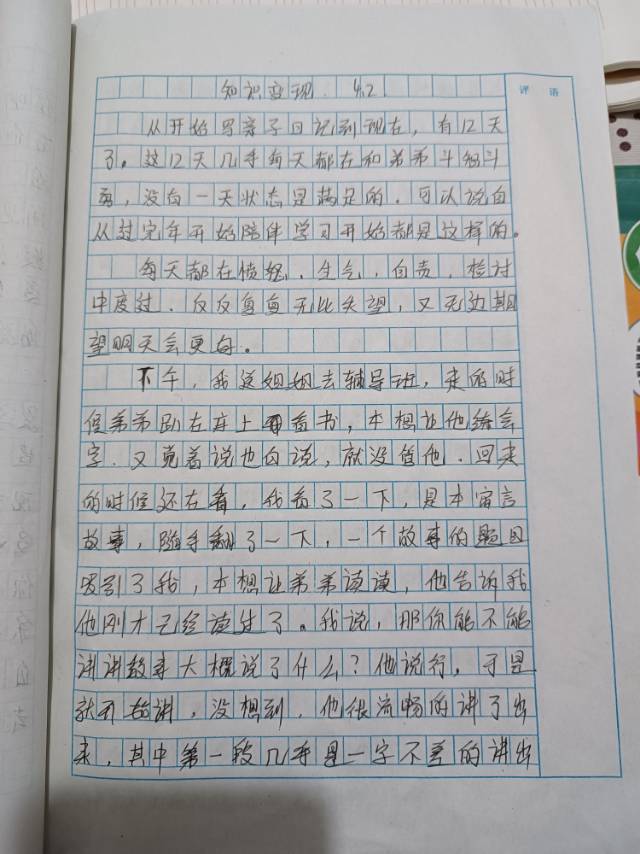 知识变现. 4.2.
评 语
从开始写亲子日记到现在，有12天
了。这12天几乎每天都在和弟弟斗智斗
勇，没有一天状态是满足的．可以说自
从过完年开始陪伴学习开始都是这样的。
每天都在愤怒．生气，自责，检讨
中度过．反反复复无比失望，又无边期
望明天会更好。
下午，我送姐姐去辅导班，走的时
候弟弟趴在床上看书，本想让他练会
字．又觉着说也白说，就没管他．回来
的时候还在看，我看了一下，是本寓言
故事，随手翻了一下，一个故事的题目
吸引了我，本想让弟弟读读，他告诉我
他刚才已经读过了。我说，那你能不能
讲讲故事大概说了什么？他说行，于是
就开始讲，没想到，他很流畅的讲了出
来，其中第一段几乎是一字不差的讲出